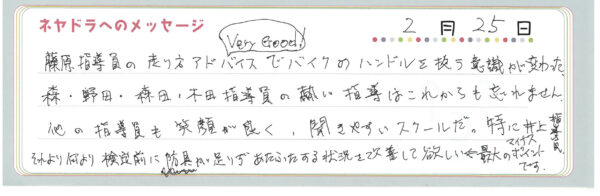 ネヤドラへのメッセージ
Very Good!
2月25日
藤原指導員の走り方アドバイスでバイクのハンドルを扱う意識が変わった。
森・野田・森田・本田指導員の熱い指導はこれからも忘れません。
他の指導員も笑顔が良く、聞きやすいスクールだ。特に井上指導員
それより何より検定前に防具が足りずあたふたする状況を改善して欲しい←最大のマイナスポイントです。